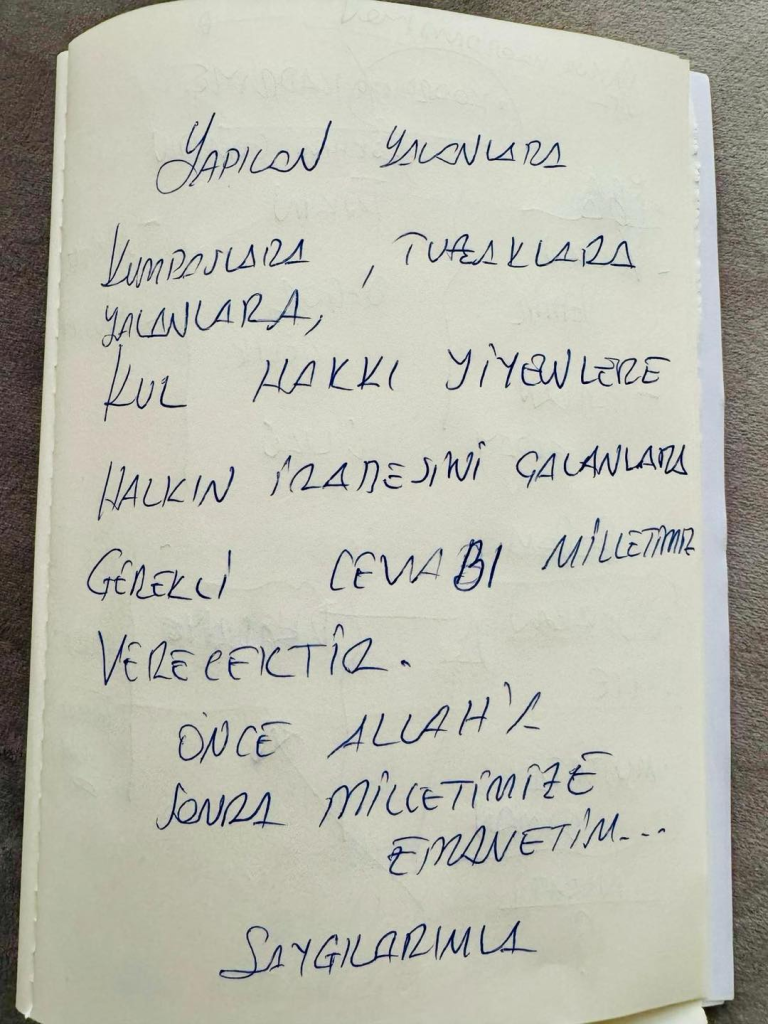 YAPILAN YALANLARA
KUMPASLARA , TUZAKLARA
YALANLARA,
KUL HAKKI YİYENLERE
HALKIN İRADESİNİ ÇALANLARA
GEREKLİ CEVABI MİLLETİMİZ
VERECEKTİR.
ÖNCE ALLAH'A
SONRA MİLLETİMİZE
EMANETİM...
SAYGILARIMLA